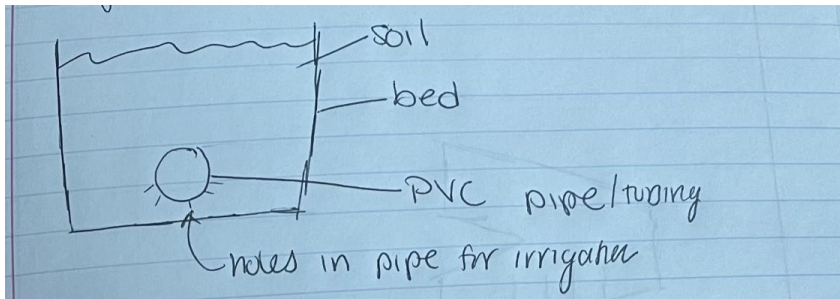 soil
bed
PVC pipe/tubing
holes in pipe for irrigation